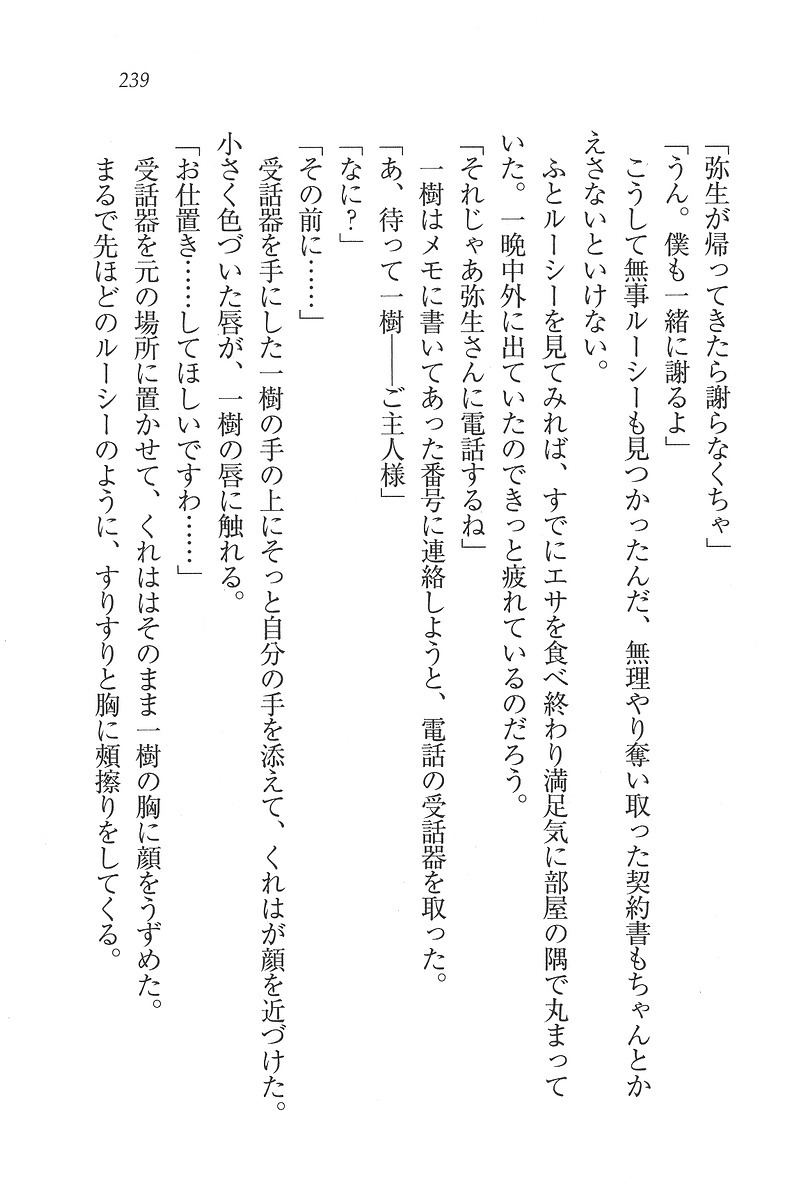 239
「弥生が帰ってきたら謝らなくちゃ」
「うん。僕も一緒に謝るよ」
こうして無事ルーシーも見つかったんだ、無理やり奪い取った契約書もちゃんとか
えさないといけない。
ふとルーシーを見てみれば、すでにエサを食べ終わり満足気に部屋の隅で丸まって
いた。一晩中外に出ていたのできっと疲れているのだろう。
「それじゃあ弥生さんに電話するね」
一樹はメモに書いてあった番号に連絡しようと、電話の受話器を取った。
「あ、待って一樹――ご主人様」
「なに？」
「その前に……」
受話器を手にした一樹の手の上にそっと自分の手を添えて、くれはが顔を近づけた。
小さく色づいた唇が、一樹の唇に触れる。
「お仕置き……してほしいですわ……」
受話器を元の場所に置かせて、くれははそのまま一樹の胸に顔をうずめた。
まるで先ほどのルーシーのように、すりすりと胸に頬擦りをしてくる。